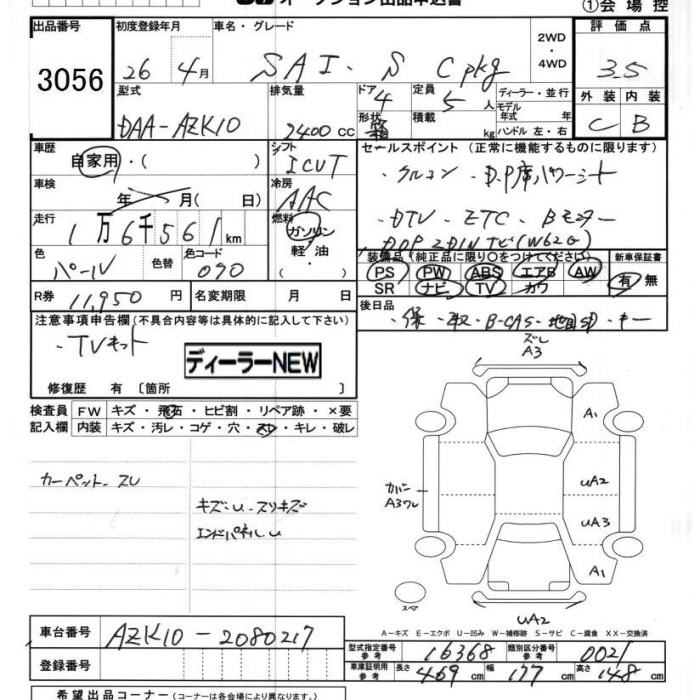 オークション出品申込書
①会場控
出品番号 初度登録年月 車名・グレード 2WD ・ 4WD 評価点
3056 26 4月 SAI・S Cpkg 3.5
型式 排気量 ドア 定員 ディーラー・並行 外装 内装
4 5人 モデル年式 年
形状 積載 kg ハンドル 左・右
DAA-AZK10 2400cc C B
車歴 シフト セールスポイント (正常に機能するものに限ります)
自家用・( ) ICVT ・クルコン ・D.P席パワーシート
車検 年 月(日) 冷房 AAC
走行 1万6千561km 燃料 ガソリン 軽油 ・DTV ・ETC ・Bモニター
DOP 2DIN TV(W62G)
色 色替 色コード 装備品(純正品に限り○をつけてください) 新車保証書
パール 070 PS PW ABS エアB AW 有 無
SR ナビ TV カワ
R券 11,950円 名変期限 月 日 後日品
・保・取・B-CAS・地図SD・キー
注意事項申告欄(不具合内容等は具体的に記入して下さい)
・TVキット
ディーラーNEW
修復歴 有〔箇所 〕
検査員 FW キズ・飛石・ヒビ割・リペア跡・×要
記入欄 内装 キズ・汚レ・コゲ・穴・スレ・キレ・破レ
ズレ
A3
A1
カーペット・スレ
キズU・スリキズ
エンドパネルU
カバー
A3ワレ
UA2
UA3
A1
スペア
UA2
A-キズ E-エクボ U-凹み W-補修跡 S-サビ C-腐食 XX-交換済
車台番号 AZK10-2080217
型式指定番号 参考 16368 類別区分番号 参考 0021
登録番号 車庫証明用 参考 長さ 469cm 幅 177cm 高さ 148cm
希望出品コーナー(コーナーは各会場により異なります)